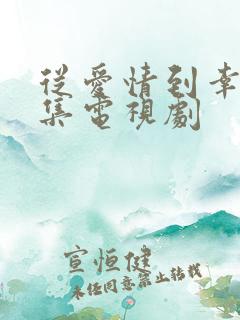 從愛情到幸
集電視劇
宣恒健
未任同意禁止转载